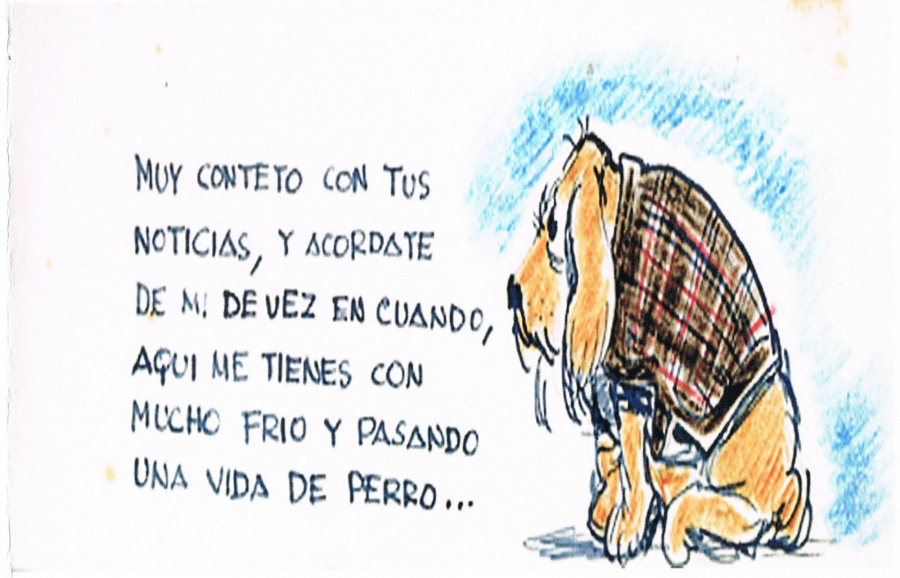 MUY CONTETO CON TUS
NOTICIAS, Y ACORDATE
DE MI DE VEZ EN CUANDO,
AQUI ME TIENES CON
MUCHO FRIO Y PASANDO
UNA VIDA DE PERRO...